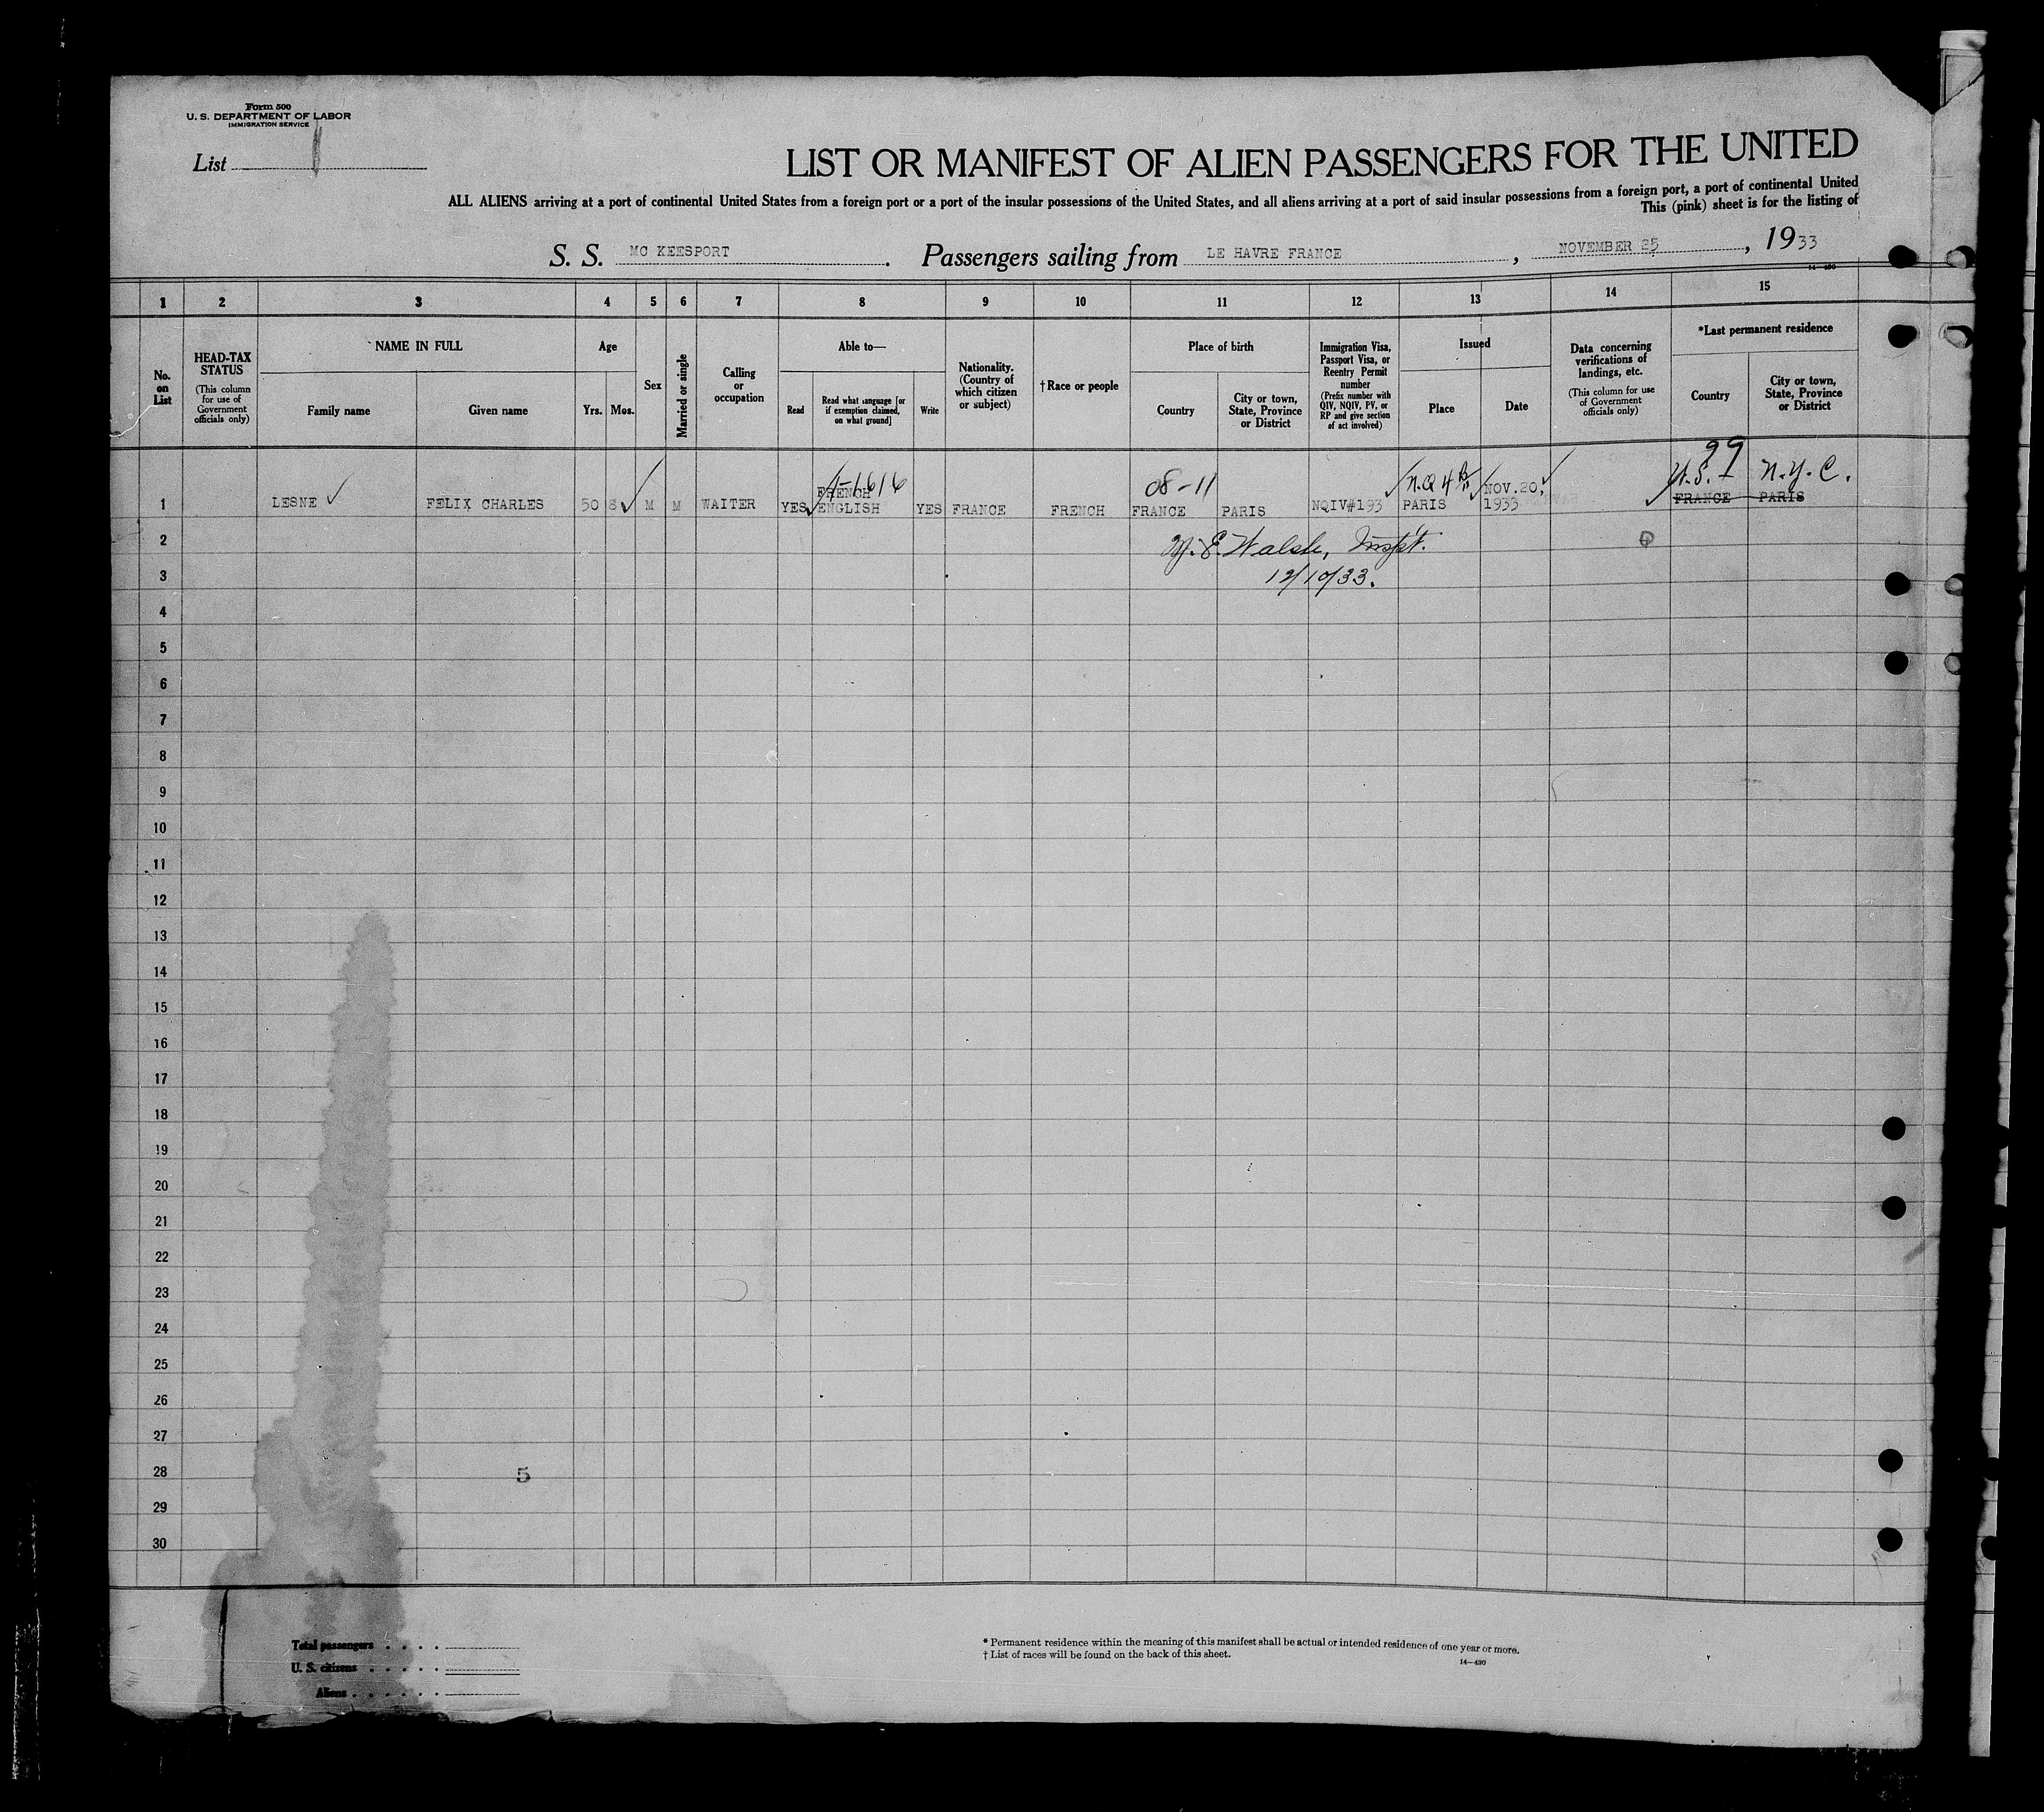 Form 500
U. S. DEPARTMENT OF LABOR
IMMIGRATION SERVICE
List 1
LIST OR MANIFEST OF ALIEN PASSENGERS FOR THE UNITED
ALL ALIENS arriving at a port of continental United States from a foreign port or a port of the insular possessions of the United States, and all aliens arriving at a port of said insular possessions from a foreign port, a port of continental United
This (pink) sheet is for the listing of
S. S. MC KEESPORT. Passengers sailing from LE HAVRE FRANCE, NOVEMBER 25, 1933
14—430
1 2 3 4 5 6 7 8 9 10 11 12 13 14 15
No. on List
HEAD-TAX STATUS
(This column for use of Government officials only)
NAME IN FULL
Family name
Given name
Age
Yrs.
Mos.
Sex
Married or single
Calling or occupation
Able to—
Read
Read what language [or if exemption claimed, on what ground]
Write
Nationality. (Country of which citizen or subject)
†Race or people
Place of birth
Country
City or town, State, Province or District
Immigration Visa, Passport Visa, or Reentry Permit number
(Prefix number with QIV, NQIV, PV, or RP and give section of act involved)
Issued
Place
Date
Data concerning verifications of landings, etc.
(This column for use of Government officials only)
*Last permanent residence
Country
City or town, State, Province or District
99
1-1616 08-11 N.Q 4 U.S. N.Y.C.
FRENCH NOV.20, FRANCE PARIS
1 LESNE FELIX CHARLES 50 8 M M WAITER YES ENGLISH YES FRANCE FRENCH FRANCE PARIS NQIV#193 PARIS 1933
2 M. E. Walsh, Inspt.
3 12/10/33.
4
5
6
7
8
9
10
11
12
13
14
15
16
17
18
19
20
21
22
23
24
25
26
27
28 5
29
30
Total passengers . . . .
U. S. citizens . . . . .
Aliens . . . . . .
* Permanent residence within the meaning of this manifest shall be actual or intended residence of one year or more.
† List of races will be found on the back of this sheet.
14—430